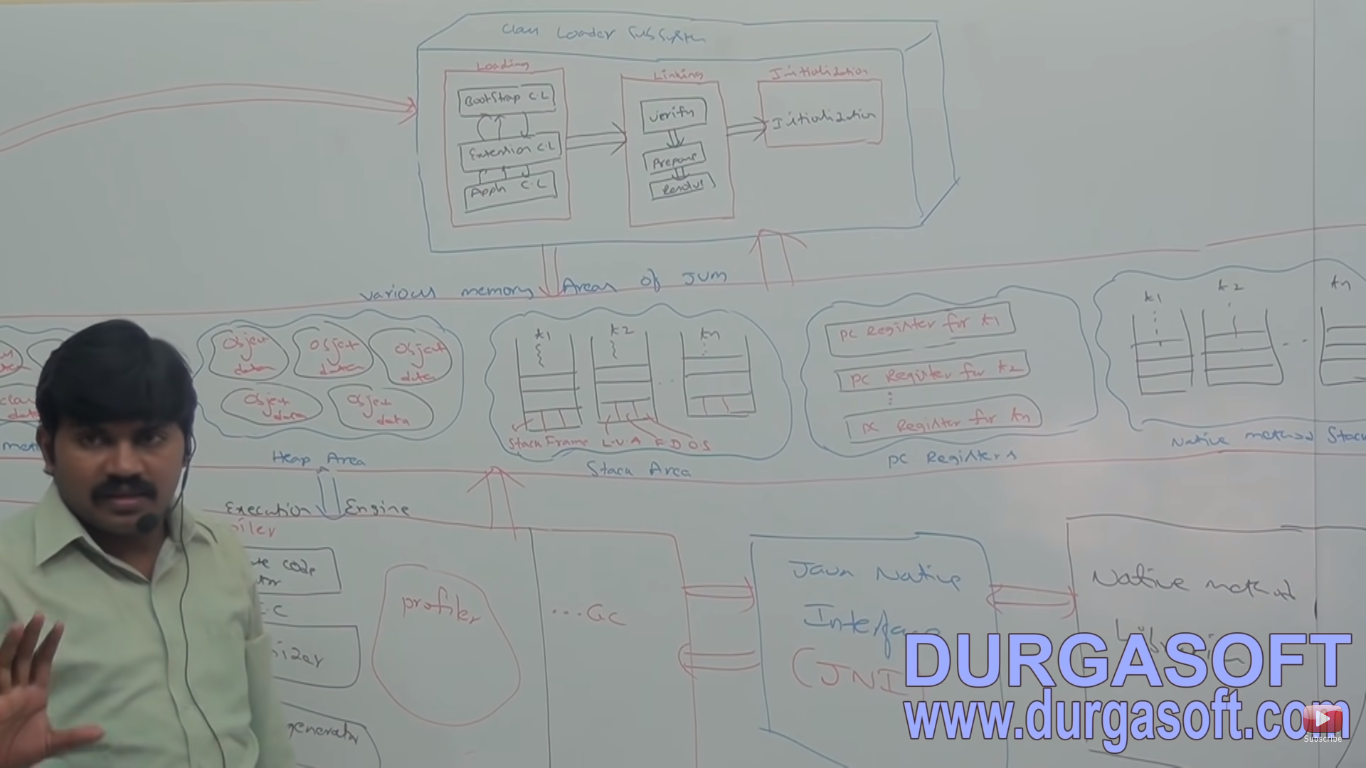 Class Loader Subsystem
Loading
Linking
Initialization
Bootstrap C.L
Extention C.L
Appln C.L
Verify
Prepare
Initialization
Various memory Areas of JVM
Object data
Object data
Object data
Object data
Object data
Heap Area
t1
t2
tn
Stack Frame L.V.A F.D O.S
Stack Area
PC Register for t1
PC Register for t2
PC Register for tn
PC Registers
t1
t2
tn
Native method
Execution Engine
piler
code
profiler
...GC
izer
generator
Java Native
Interface
(JNI
Native method
DURGASOFT
www.durgasoft.com
Subscribe